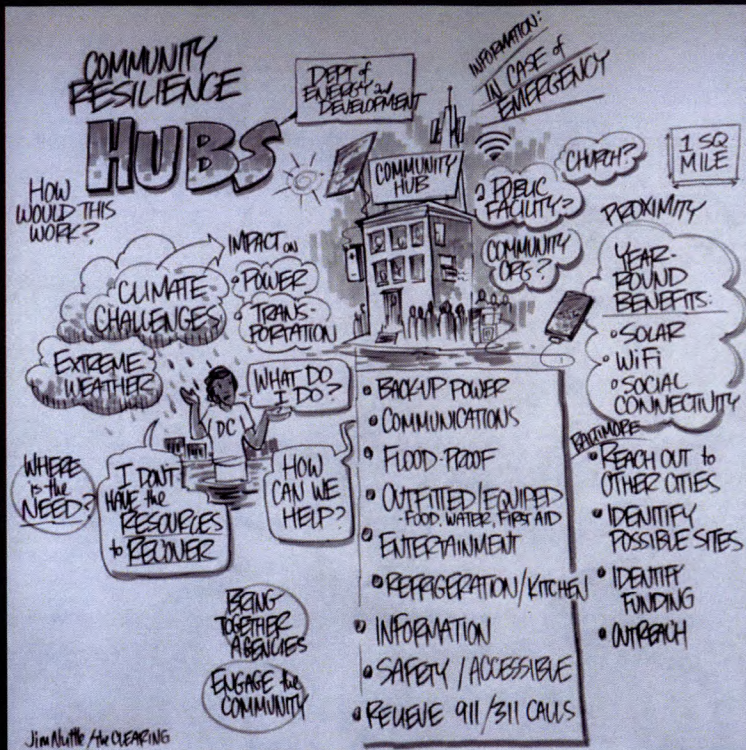 COMMUNITY
RESILIENCE
HUBS
DEPT of
ENERGY and
DEVELOPMENT
INFORMATION:
IN CASE of
EMERGENCY
HOW
WOULD THIS
WORK?
COMMUNITY
HUB
CHURCH?
PUBLIC
FACILITY?
COMMUNITY
ORG?
1 SQ
MILE
PROXIMITY
YEAR-
ROUND
BENEFITS:
• SOLAR
• WiFi
• SOCIAL
CONNECTIVITY
CLIMATE
CHALLENGES
IMPACT on
• POWER
• TRANS-
PORTATION
EXTREME
WEATHER
WHAT DO
I DO?
DC
WHERE
is the
NEED?
I DON'T
HAVE the
RESOURCES
to RECOVER
HOW
CAN WE
HELP?
BRING
TOGETHER
AGENCIES
ENGAGE the
COMMUNITY
• BACK-UP POWER
• COMMUNICATIONS
• FLOOD-PROOF
• OUTFITTED/EQUIPED
-FOOD, WATER, FIRST AID
• ENTERTAINMENT
• REFRIGERATION/KITCHEN
• INFORMATION
• SAFETY/ACCESSIBLE
• RELIEVE 911/311 CALLS
BALTIMORE
• REACH OUT to
OTHER CITIES
• IDENTIFY
POSSIBLE SITES
• IDENTIFY
FUNDING
• OUTREACH
Jim Nuttle/the CLEARING